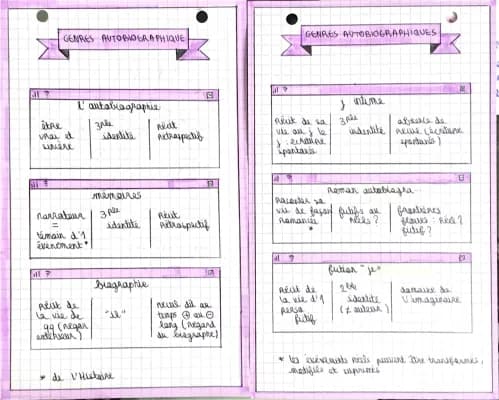 GENRES AUTOBIOGRAPHIQUE
L'autobiographie
être
vrai et
sincère
3ple
identité
récit
rétrospectif
mémoires
narrateur
=
témain d'1
évènement*
3ple
identité
récit
rétrospectif
biographie
récit de
la vie de
qq (regar
extérieur)
"il"
recul dû au
temps ⊕ ou ⊖
long (regard
du biographe)
* de l'Histoire
GENRES AUTOBIOGRAPHIQUES
j intime
récit de sa
vie au j le
j : écriture
spontanée
3ple
identité
absence de
recul (écriture
spontanée)
roman autobiogra...
raconter sa
vie de façon
romancée
*
fictifs ou
réels ?
frontières
floues : réel ?
fictif ?
fiction "je"
récit de
la vie d'1
perso
fictif
2ble
identité
(≠ auteur)
domaine de
l'imaginaire
* les évènements réels peuvent être transformés,
modifiés et supprimés